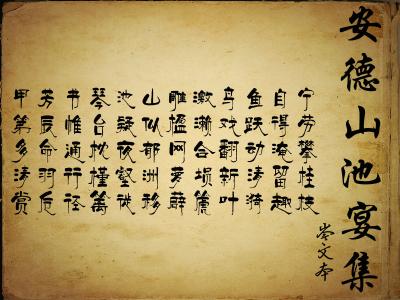 安德山池宴集
岑文本
甲第多清赏
芳辰命羽卮
书帷通行径
琴台枕槿篱
池疑夜壑徙
山似郁洲移
雕楹网萝薜
激濑合埙篪
鸟戏翻新叶
鱼跃动清漪
自得淹留趣
宁劳攀桂枝